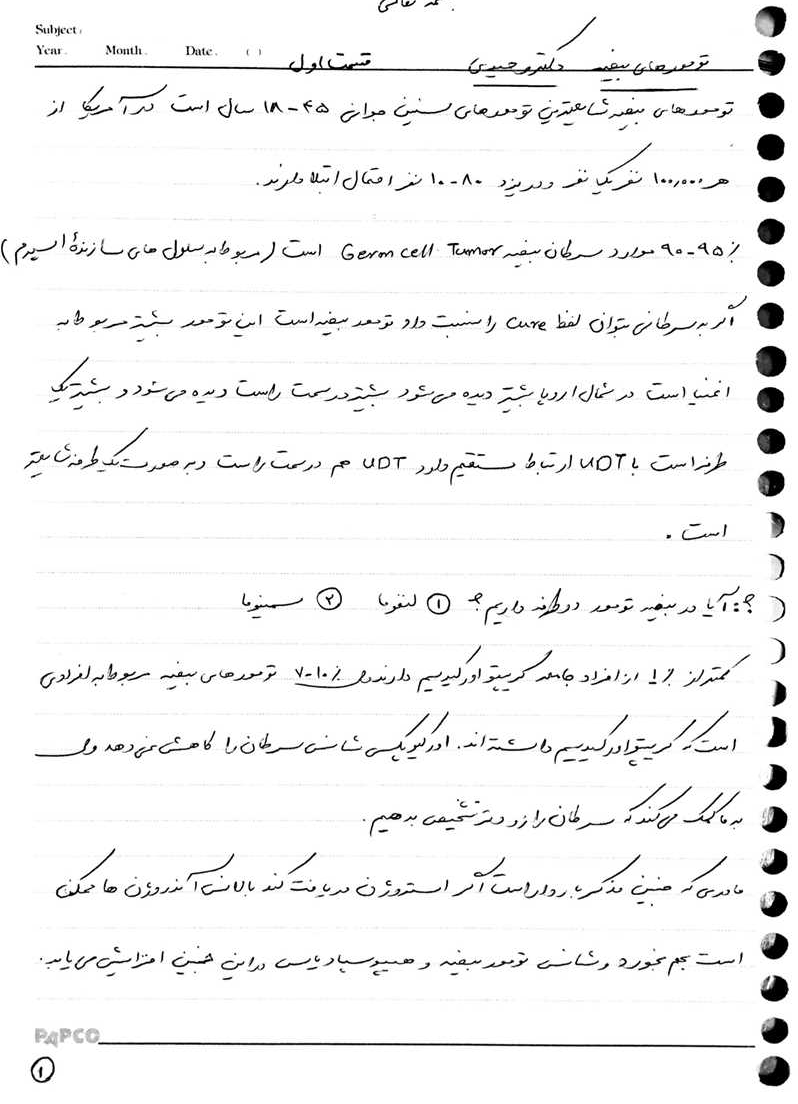 بسمه تعالی
Subject:
Year. Month. Date. ( )
تومورهای بیضه دکتر وحیدی قسمت اول
تومورهای بیضه شایعترین تومورهای سنین جوانی ۴۵-۱۸ سال است در آمریکا از
هر ۱۰۰,۰۰۰ نفر یک نفر و در یزد ۸۰-۱۰ نفر احتمال ابتلا دارند.
٪۹۵-۹۰ موارد سرطان بیضه Germ cell Tumor است (مربوط به سلول های سازندهٔ اسپرم)
اگر به سرطانی بتوان لفظ cure را نسبت داد تومور بیضه است این تومور بیشتر مربوط به
اغنیا است در شمال اروپا بیشتر دیده می شود بیشتر در سمت راست دیده می شود و بیشتر یک
طرفه است با UDT ارتباط مستقیم دارد UDT هم در سمت راست و به صورت یک طرفه شایعتر
است .
؟: آیا در بیضه تومور دوطرفه داریم؟ ① لنفوما ② سمینوما
کمتر از ٪۱ از افراد جامعه کریپتواورکیدیسم دارند ولی ٪۱۰-۷ تومورهای بیضه مربوط به افرادی
است که کریپتواورکیدیسم داشته اند. اورکیوپکسی شانس سرطان را کاهش نمی دهد ولی
به ما کمک می کند که سرطان را زودتر تشخیص بدهیم.
مادری که جنین مذکر باردار است اگر استروژن دریافت کند بالانس آندروژن ها ممکن
است بهم بخورد و شانس تومور بیضه و هیپوسپادیاس در این جنین افزایش می یابد.
PAPCO
①